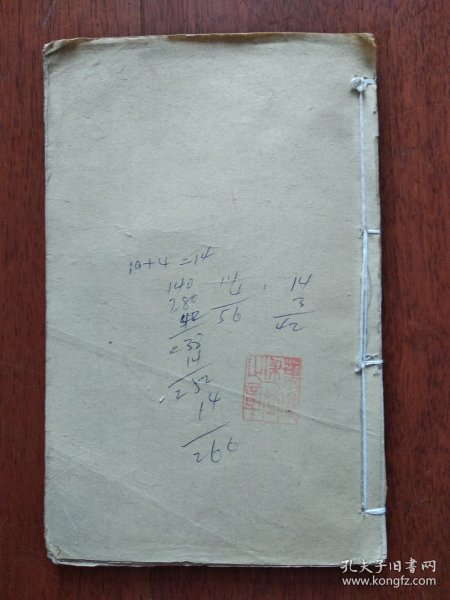 10+4=14
140
280
42
238
14
252
14
266
14
4
56
14
3
42
孔夫子旧书网
www.kongfz.com